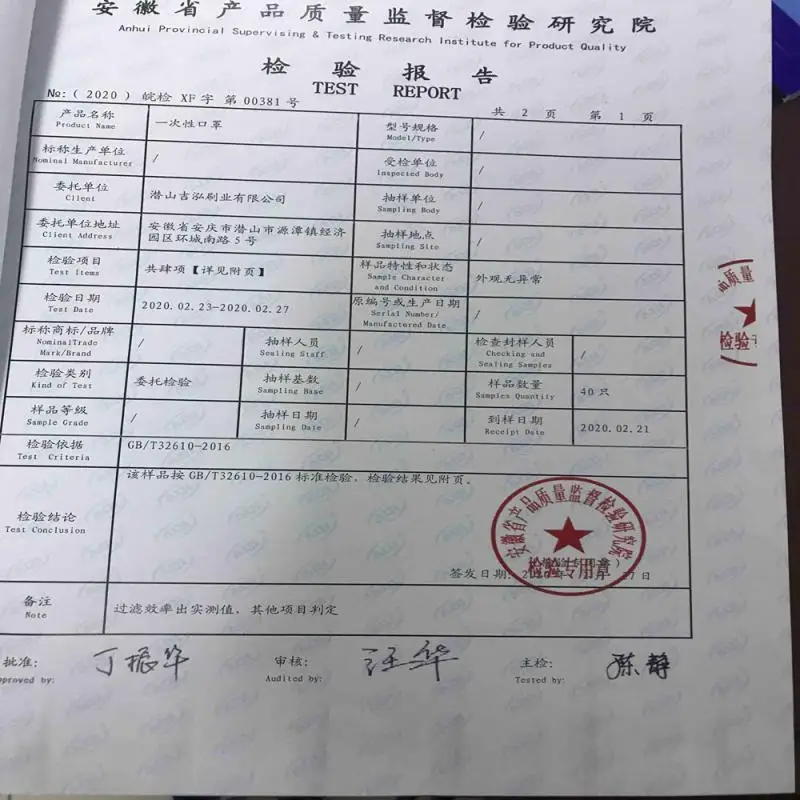 安徽省产品质量监督检验研究院
Anhui Provincial Supervising & Testing Research Institute for Product Quality
检 验 报 告
TEST REPORT
№:(2020) 皖检 XF字 第 00381 号
共 2 页 第 1 页
产品名称
Product Name
一次性口罩
型号规格
Model/Type
/
标称生产单位
Nominal Manufacturer
/
受检单位
Inspected Body
/
委托单位
Client
潜山吉泓刷业有限公司
抽样单位
Sampling Body
/
委托单位地址
Client Address
安徽省安庆市潜山市源潭镇经济
园区环城南路5号
抽样地点
Sampling Site
/
检验项目
Test Items
共肆项【详见附页】
样品特性和状态
Sample Character
and Condition
外观无异常
检验日期
Test Date
2020.02.23-2020.02.27
原编号或生产日期
Serial Number/
Manufactured Date
/
标称商标/品牌
NominalTrade
Mark/Brand
/
抽样人员
Sealing Staff
/
检查封样人员
Checking and
Sealing Samples
/
检验类别
Kind of Test
委托检验
抽样基数
Sampling Base
/
样品数量
Samples Quantity
40只
样品等级
Sample Grade
/
抽样日期
Sampling Date
/
到样日期
Receipt Date
2020.02.21
检验依据
Test Criteria
GB/T32610-2016
检验结论
Test Conclusion
该样品按 GB/T32610-2016 标准检验,检验结果见附页。
安徽省产品质量监督检验研究院
检验专用章
签发日期:
27日
备注
Note
过滤效率出实测值,其他项目判定
批准:
pproved by:
丁振华
审核:
Audited by:
汪华
主检:
Tested by:
陈静
品质量
检验